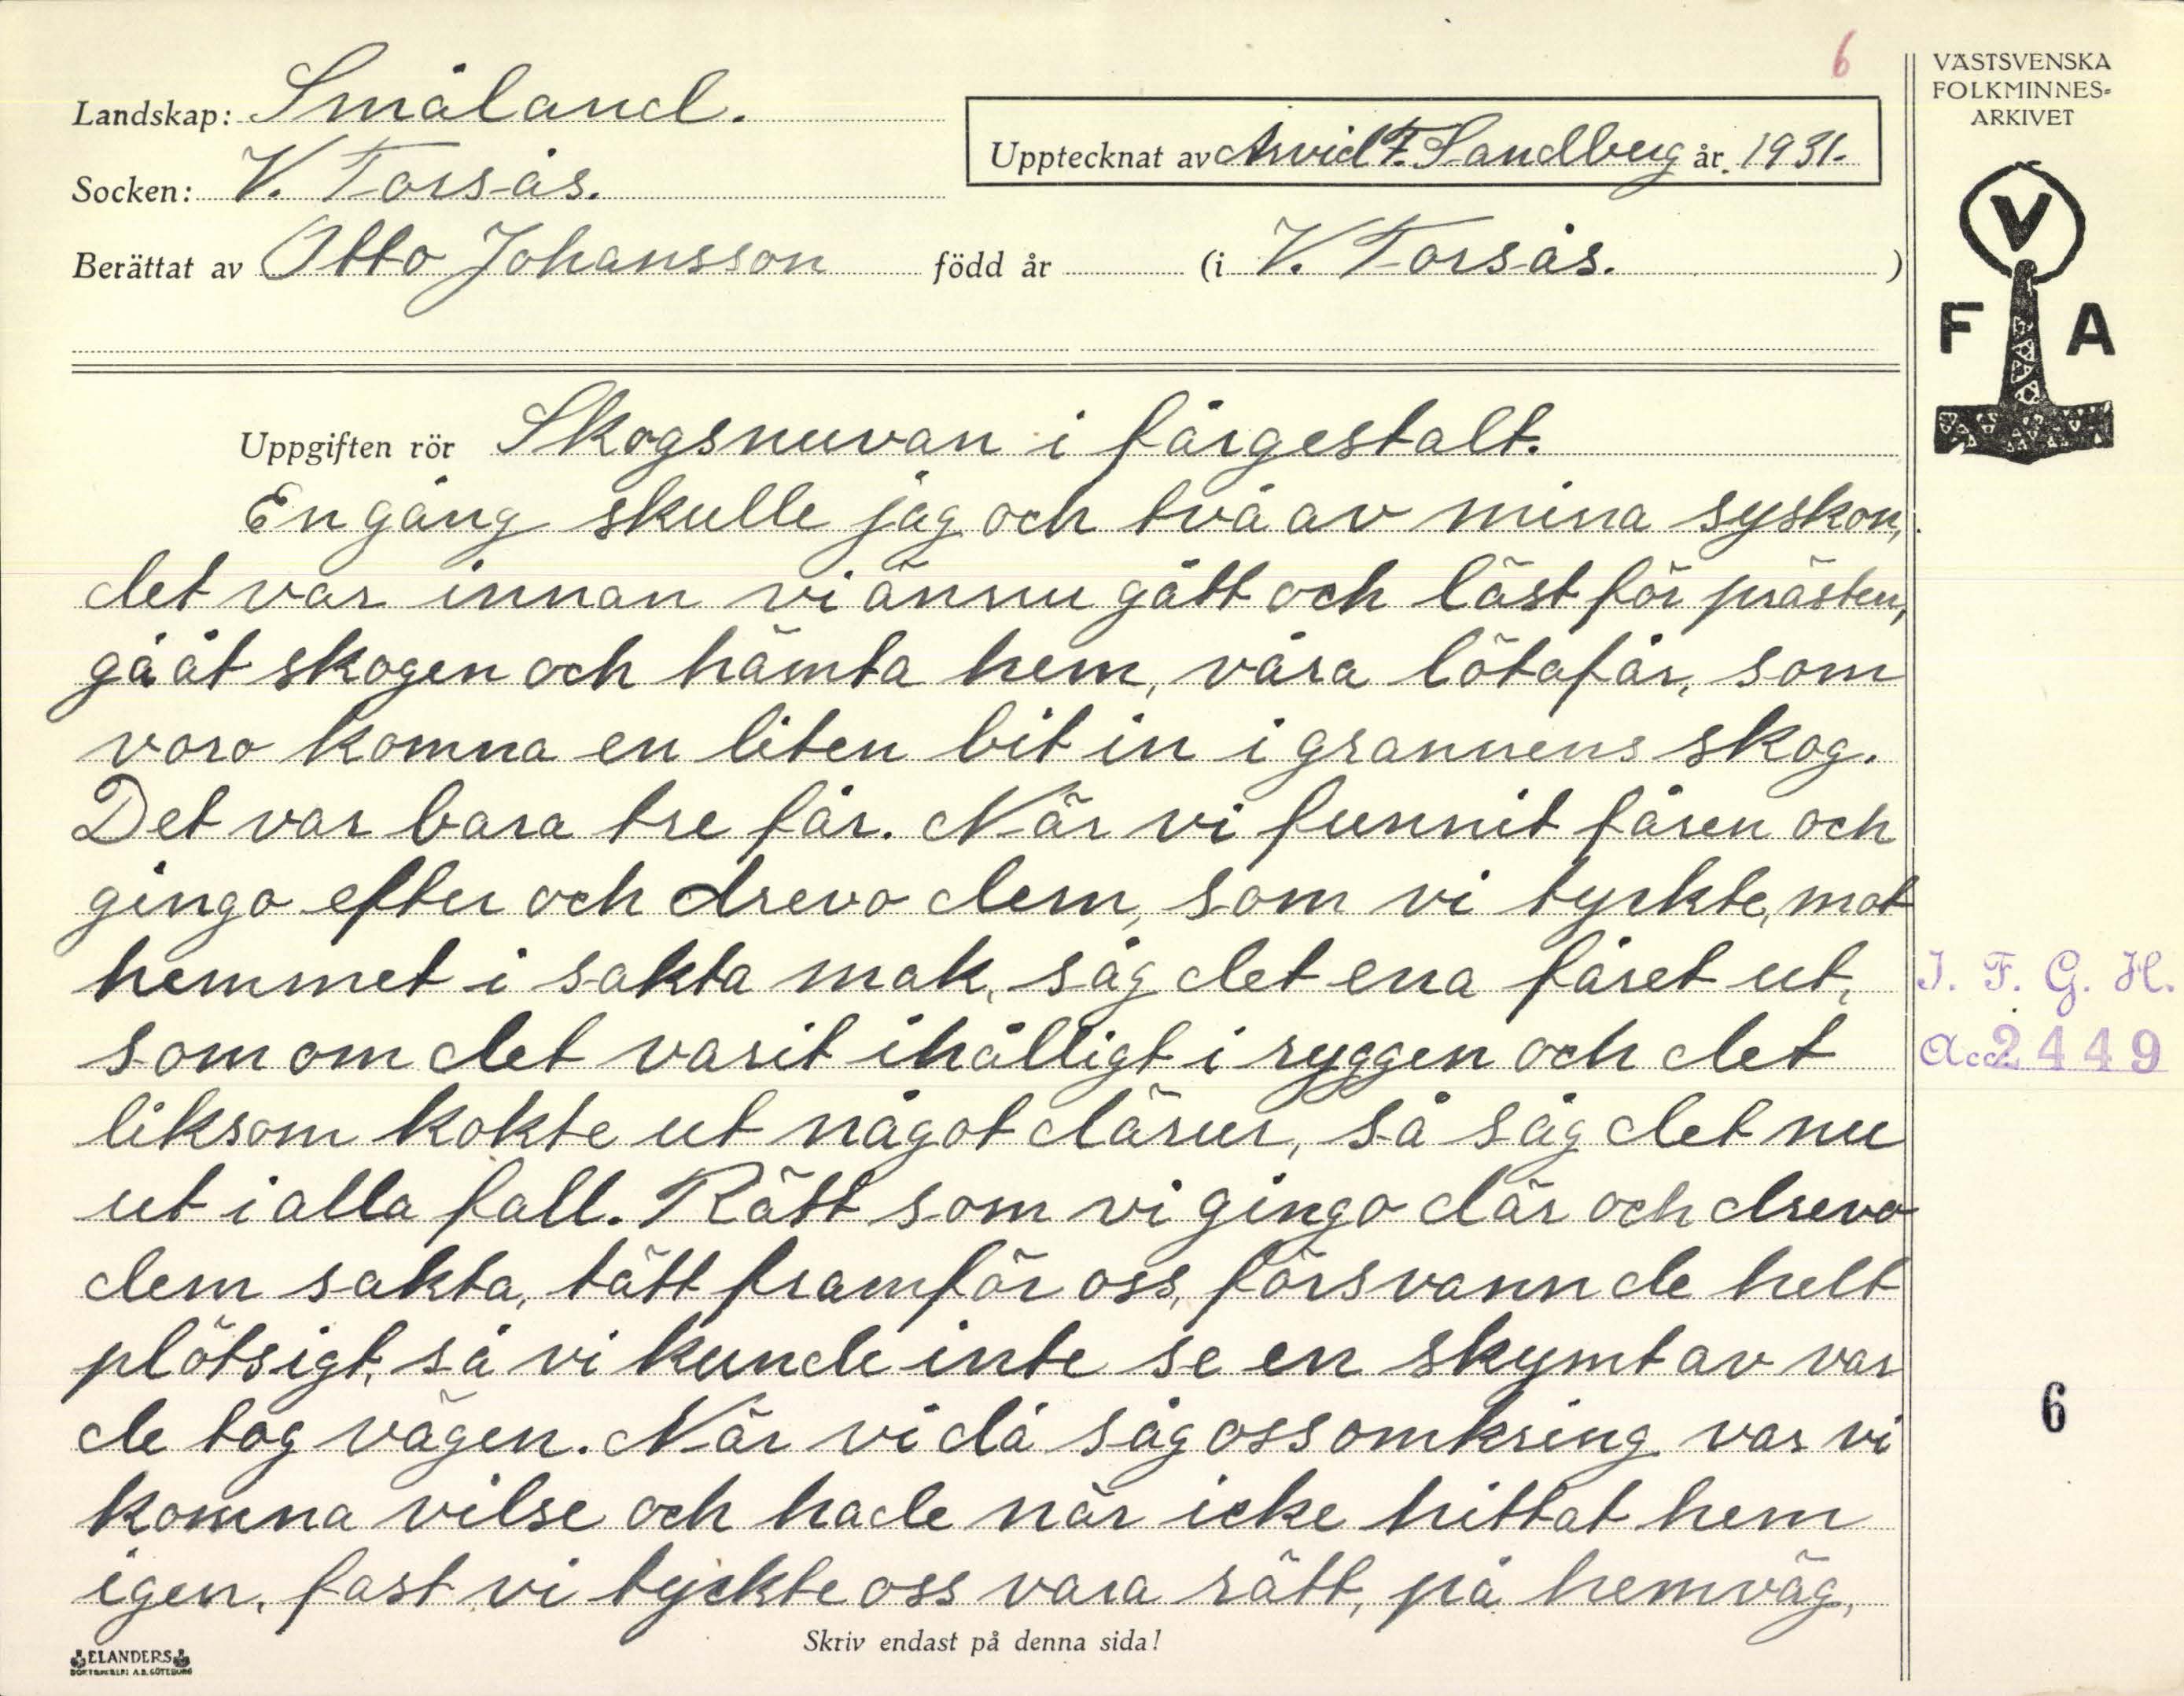 6
Landskap: Småland.
Socken: V. Torsås.
Upptecknat av Arvid F. Sandberg år 1931.
Berättat av Otto Johansson född år (i V. Torsås. )
Uppgiften rör Skogsnuvan i fårgestalt.
En gång skulle jag och två av mina syskon,
det var innan vi ännu gått och läst för prästen,
gå åt skogen och hämta hem, våra lötafår, som
voro komna en liten bit in i grannens skog.
Det var bara tre får. När vi funnit fåren och
gingo efter och drevo dem, som vi tyckte, mot
hemmet i sakta mak, såg det ena fåret ut,
som om det varit ihålligt i ryggen och det
liksom kokte ut något därur, så såg det nu
ut i alla fall. Rätt som vi gingo där och drevo
dem sakta, tätt framför oss, försvann de helt
plötsigt, så vi kunde inte se en skymt av var
de tog vägen. När vi då såg oss omkring var vi
komna vilse och hade när icke hittat hem
igen, fast vi tyckte oss vara rätt, på hemväg,
Skriv endast på denna sida!
ELANDERS
BOKTRYCKERI A.B. GÖTEBORG
VÄSTSVENSKA
FOLKMINNES-
ARKIVET
V
F A
I. F. G. H.
Acc. 2449
6